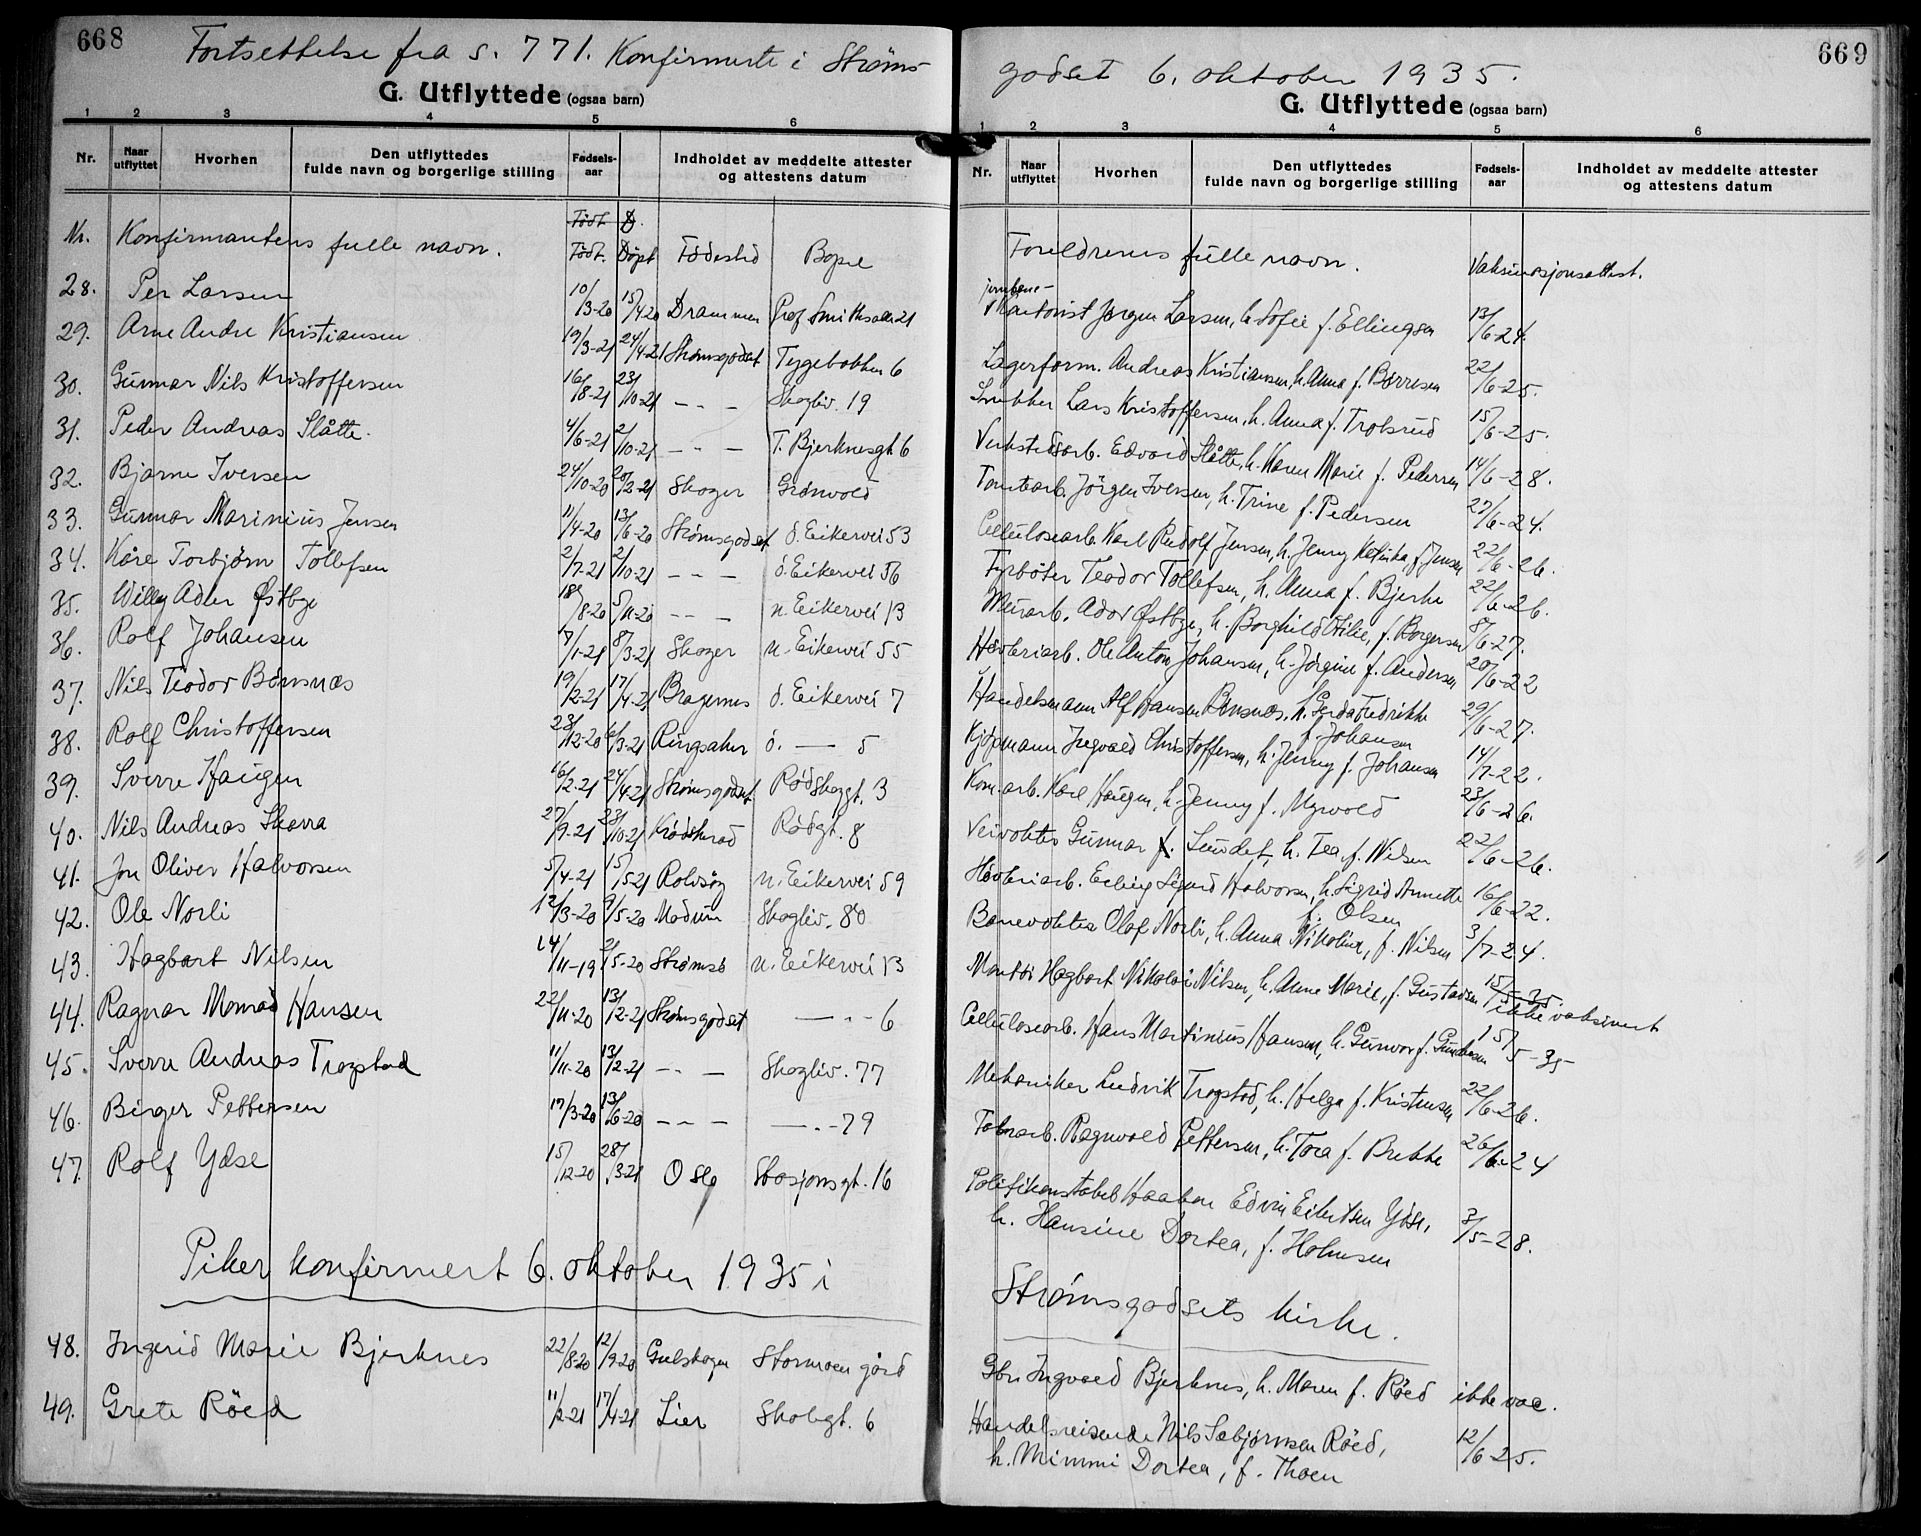 668
Fortsettelse fra s. 771. Konfirmerte i Strøms-
G. Utflyttede (ogsaa barn)
1 2 3 4 5 6
Nr. Naar utflyttet Hvorhen Den utflyttedes fulde navn og borgerlige stilling Fødsels-aar Indholdet av meddelte attester og attestens datum
Født D.
Nr. Konfirmantens fulle navn. Født. Døpt Fødested Bopel
28. Per Larsen 10/3-20 15/4 20 Drammen Prof Smiths alle 21
29. Arne Andre Kristiansen 19/3-21 24/4-21 Strømsgodset Tygebakken 6
30. Gunnar Nils Kristoffersen 16/8-21 23/10-21 - - - Skogliv. 19
31. Peder Andreas Slåtte. 4/6-21 2/10-21 - - - T. Bjerknesgt 6
32. Bjarne Iversen 24/10-20 20/2-21 Skoger Grønvold
33. Gunnar Marinius Jensen 11/4-20 13/6-20 Strømsgodset ø. Eikervei 53
34. Kåre Torbjørn Tollefsen 2/7-21 2/10-21 - - - ø. Eikervei 56
35. Willy Ader Østbye 18/8-20 5/11-20 - - - n. Eikervei 13
36. Rolf Johansen 17/1-21 8/3-21 Skoger n. Eikervei 55
37. Nils Teodor Bønsnæs 19/2-21 17/4-21 Bragernes ø. Eikervei 7
38. Rolf Christoffersen 23/12-20 6/3-21 Ringsaker ø. — 5
39. Sverre Haugen 16/2-21 24/4-21 Strømsgodset Rødskogt. 3
40. Nils Andreas Skarra 27/9-21 23/10-21 Krødsherad Rødgt. 8
41. Jon Oliver Halvorsen 5/4-21 15/5-21 Rolvsøy n. Eikervei 59
42. Ole Norli 12/3-20 9/5-20 Modum Skogliv. 80
43. Hagbart Nilsen 14/11-19 2/5-20 Strømsø n. Eikervei 13
44. Ragnar Monrad Hansen 22/11-20 13/2-21 Strømsgodset — - - 6
45. Sverre Andreas Trogstad 11/11-20 13/2-21 - - - Skogliv. 77
46. Birger Pettersen 17/3-20 13/6-20 - - - — - - 79
47. Rolf Ydse 15/12-20 28/3-21 Oslo Stasjonsgt. 16
Piker konfirmert 6. oktober 1935 i
48. Ingerid Marie Bjerknes 22/8-20 12/9-20 Gulskogen Stormoen gård
49. Grete Röed 11/2-21 17/4-21 Lier Skolegt. 6
669
godset 6. oktober 1935.
G. Utflyttede (ogsaa barn)
1 2 3 4 5 6
Nr. Naar utflyttet Hvorhen Den utflyttedes fulde navn og borgerlige stilling Fødsels-aar Indholdet av meddelte attester og attestens datum
Foreldrenes fulle navn. Vaksinasjonsattest.
jernbane-
Kontorist Jørgen Larsen, h. Sofie f. Ellingsen 13/6-24.
Lagerform. Andreas Kristiansen, h. Anna f. Børresen 22/6-25.
Snekker Lars Kristoffersen, h. Anna f. Trolsrud 15/6-25.
Verkstedsarb. Edvard Slåtte, h. Karen Marie f. Pedersen 14/6-28.
Tomtearb. Jörgen Iversen, h. Trine f. Pedersen 27/6-24.
Cellulosearb. Karl Rudolf Jensen, h. Jenny f. Jensen 22/6-26.
Fyrbøter Teodor Tollefsen, h. Anna f. Bjerke 22/6-26.
Murarb. Ador Østbye, h. Borghild Otilie, f. Borgersen 8/6-27.
Høvleriarb. Ole Anton Johansen, h. Jørgine f. Andersen 20/6-22
Handelsmann Alf Hansen Bønsnæs, h. Gerda Fredrikke
f. Johansen 29/6-27.
Kjöpmann Ingvald Christoffersen, h. Jenny f. Johansen 14/7-22.
Kom.arb. Karl Haugen, h. Jenny f. Myrvold 23/6-26.
Veivokter Gunnar Sundet, h. Tea f. Nilsen 22/6-26.
Høvleriarb. Erling Sigurd Halvorsen, h. Sigrid Annette
f. Olsen 16/6-22.
Banevokter Olaf Norli, h. Anna Nikoline, f. Nilsen 3/7-24.
Montör Hagbart Nikolai Nilsen, h. Anne Marie, f. Gustavsen 15/5-35 ikke vaksinert
Cellulosearb. Hans Martinius Hansen, h. Gunvor f. Gundersen 15/5-35
Mekaniker Ludvik Trogstad, h. Helga f. Kristensen 22/6-26.
Fabrarb. Ragnvald Pettersen, h. Tora f. Brekke 26/6-24
Politikonstabel Haakon Edvin Eilertsen Ydse,
h. Hansine Dortea, f. Holmsen 3/5-28.
Strømsgodsets kirke.
Gbr. Ingvald Bjerknes, h. Maren f. Röed ikke vac.
Handelsreisende Nils Sæbjørnsen Röed,
h. Mimmi Dortea, f. Thoen 12/6-25.